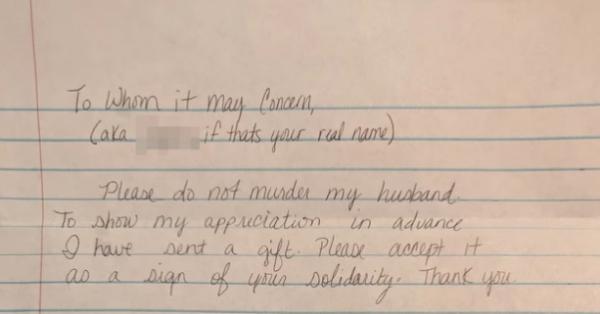 To Whom it may Concern,
(aka if thats your real name)
Please do not murder my husband.
To show my appreciation in advance
I have sent a gift. Please accept it
as a sign of your solidarity. Thank you